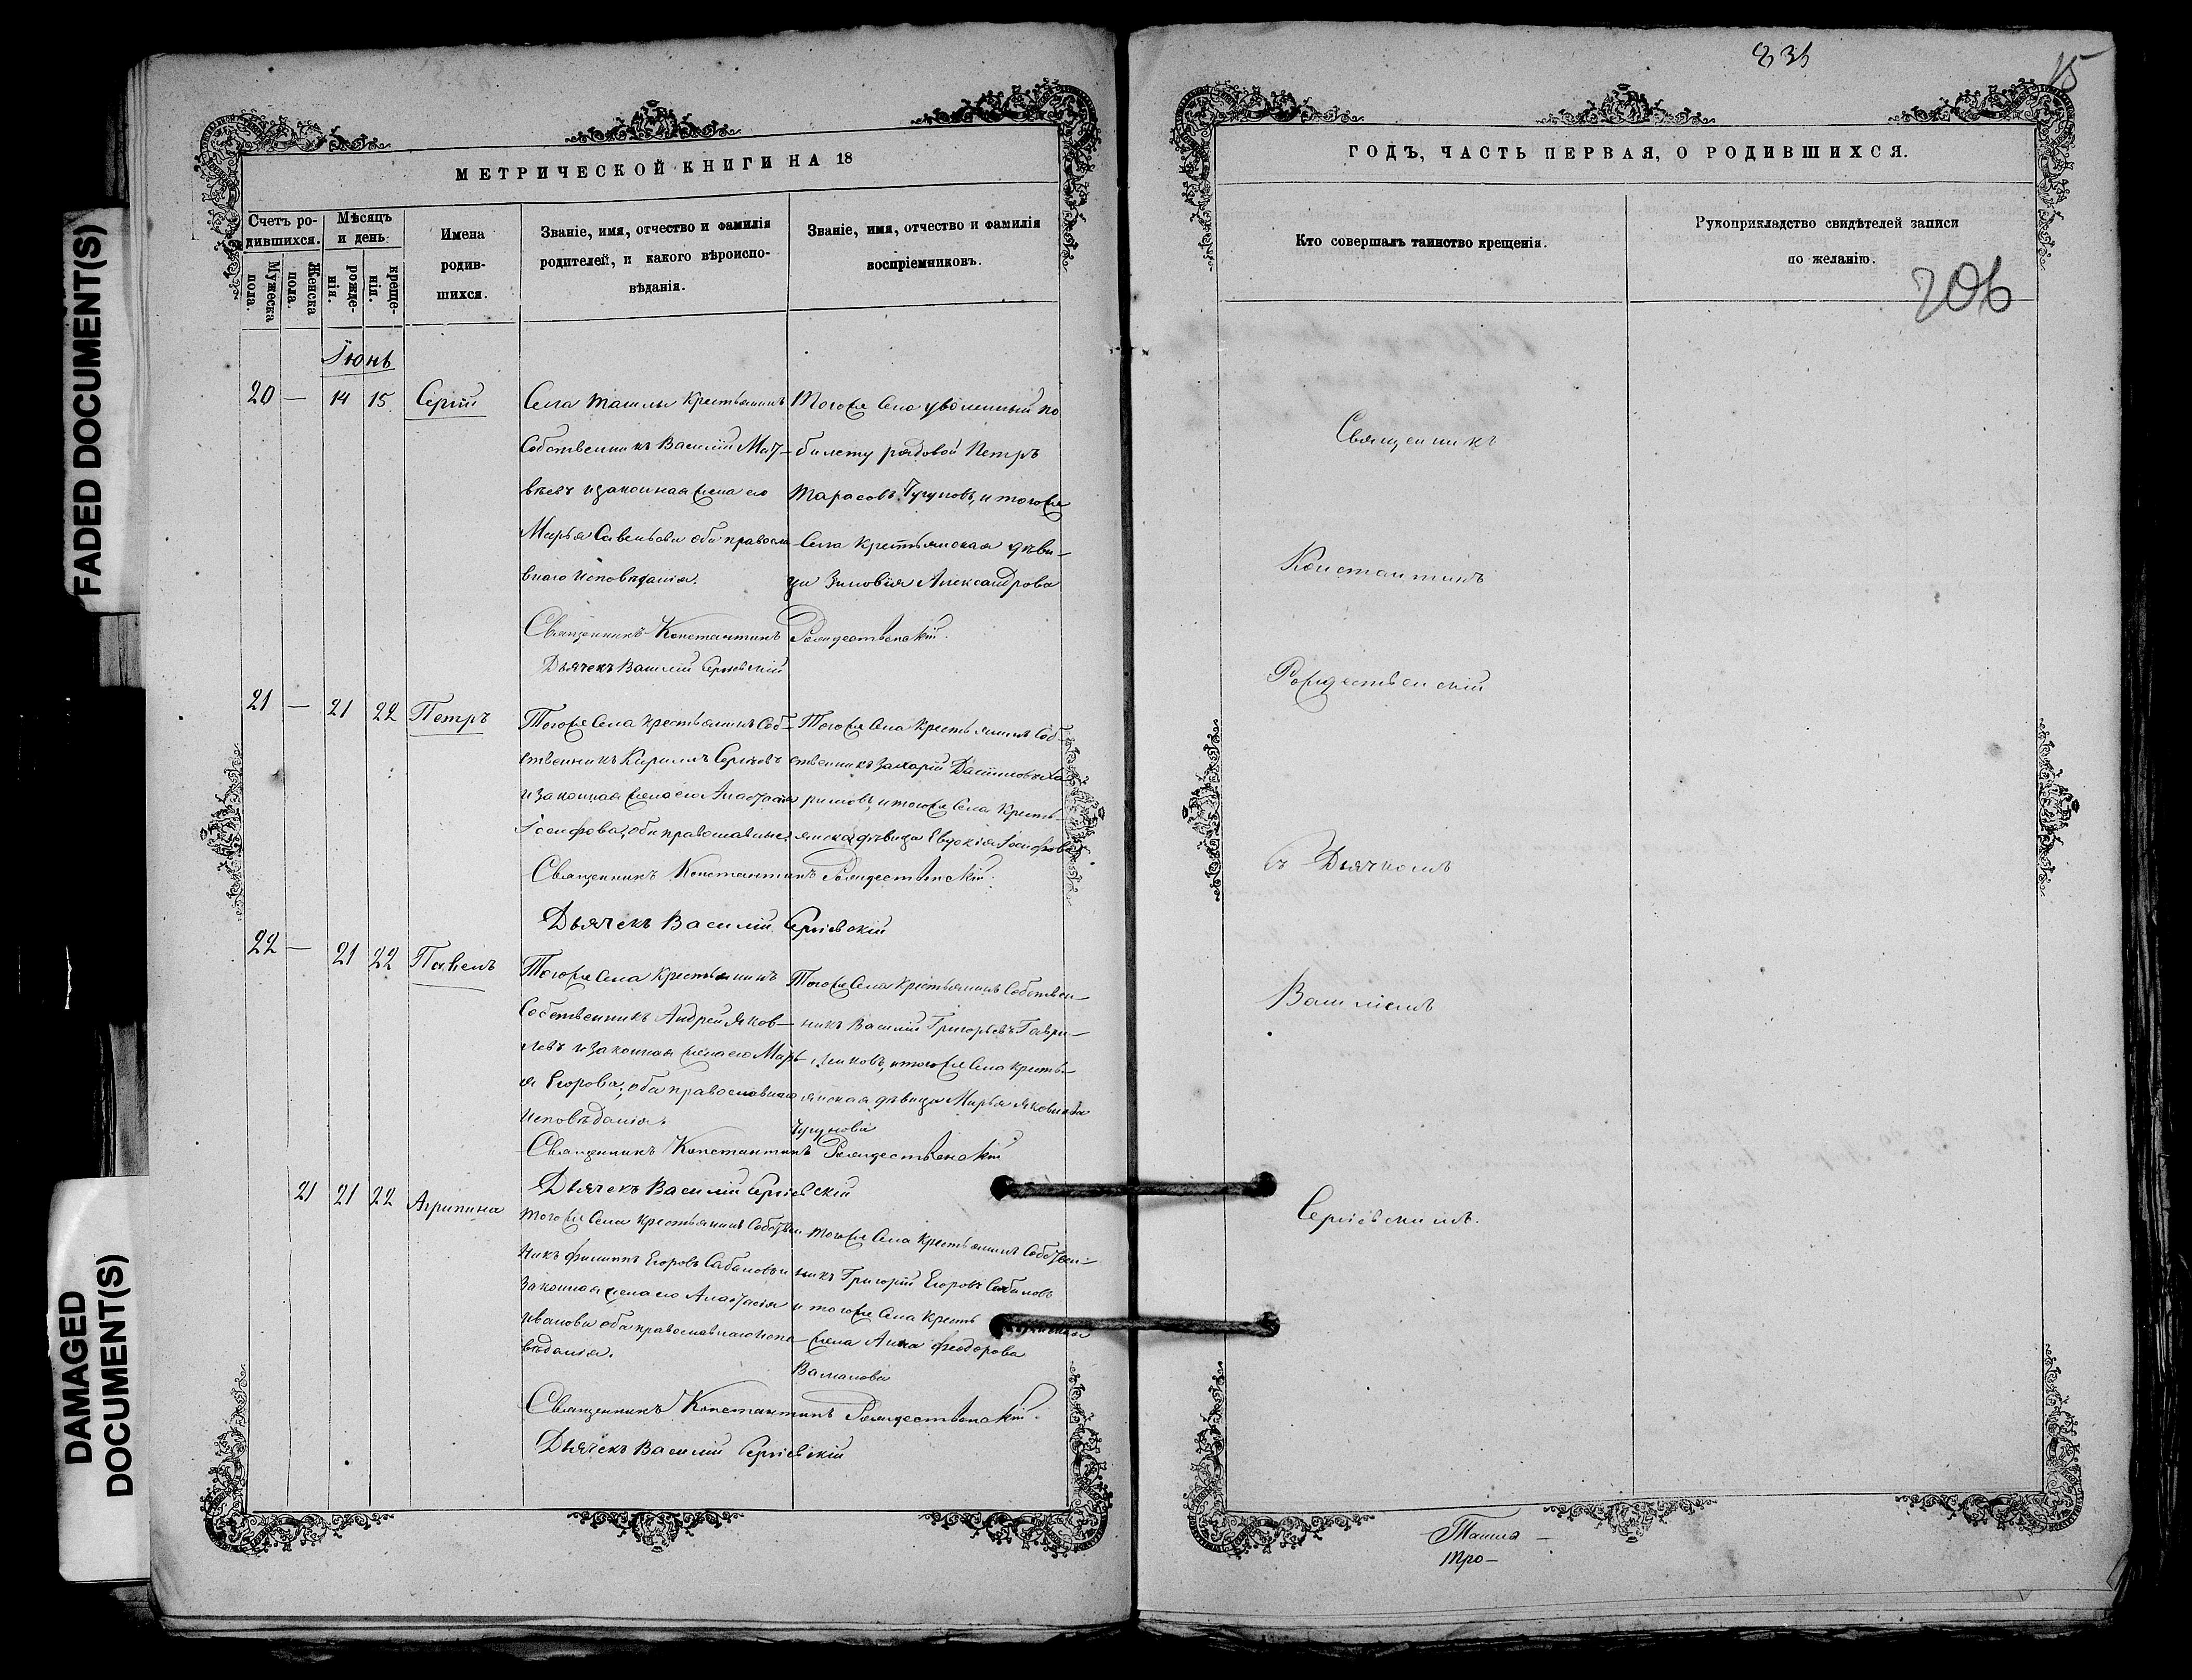 FADED DOCUMENT(S)
DAMAGED
DOCUMENT(S)
МЕТРИЧЕСКОЙ КНИГИ НА 18
Счетъ ро-
дившихся.
Мужеска
пола.
Женска
пола.
Мѣсяцъ
и день
рожде-
нія.
креще-
нія.
Имена
родив-
шихся.
Званіе, имя, отчество и фамилія
родителей, и какого вѣроиспо-
вѣданія.
Званіе, имя, отчество и фамилія
воспріемниковъ.
Іюнь
20 — 14 15 Сергій
Села Ташлы Крестьянинъ
Собственникъ Василій Мат-
вѣевъ и законная жена его
Марья Савельева оба правосла-
внаго исповѣданія.
Тогоже Села уволенный по
билету рядовой Петръ
Тарасовъ Чугуновъ, и тогоже
Села крестьянская дѣви-
ца Зиновія Александрова
Священникъ Константинъ Рождественскій.
Дьячекъ Василій Сергіевскій
21 — 21 22 Петръ
Тогоже Села крестьянинъ Соб-
ственникъ Кириллъ Сергѣевъ
и законная жена его Анастасія
Іосифова, оба православные
Тогоже Села Крестьянинъ Соб-
ственникъ Захарій Даниловъ
и тогоже Села Кресть-
янска дѣвица Евдокія Іосифова
Священникъ Константинъ Рождественскій.
Дьячекъ Василій Сергіевскій
22 — 21 22 Павелъ
Тогоже Села Крестьянинъ
Собственникъ Андрей Яков-
левъ и законная жена его Марь-
я Егорова, оба православнаго
исповѣданія.
Тогоже Села Крестьянинъ Собствен-
никъ Василій Григорьевъ Гаври-
и тогоже Села кресть-
янская дѣвица Марья Яковлева
Чугунова
Священникъ Константинъ Рождественскій
Дьячекъ Василій Сергіевскій
21 21 22 Агрипина
Тогоже Села крестьянинъ Собствен
никъ Филиппъ Егоровъ Сабановъ и
законная жена его Анастасія
Иванова оба православнаго испо-
вѣданія.
Тогоже Села Крестьянинъ Собствен-
никъ Григорій Егоровъ Сабановъ
и тогоже Села Кресть
жена Анна Феодорова
Священникъ Константинъ Рождественскій.
Дьячекъ Василій Сергіевскій
831
15
ГОДЪ, ЧАСТЬ ПЕРВАЯ, О РОДИВШИХСЯ.
Кто совершалъ таинство крещенія.
Рукоприкладство свидѣтелей записи
по желанію.
206
Священникъ
Константинъ
Рождественскій
съ Дьячкомъ
Василіемъ
Сергіевскимъ.
Ташла —
Тро —